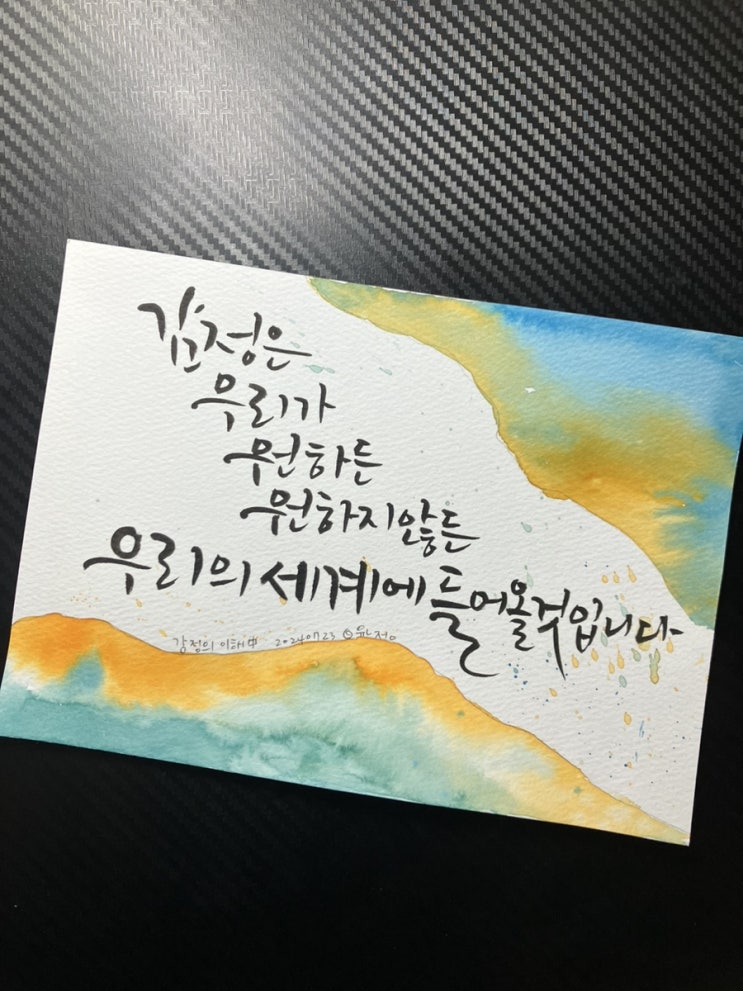 감정은
우리가
원하든
원하지않든
우리의 세계에 들어올것입니다
감정의 이해 中 2024 07 23